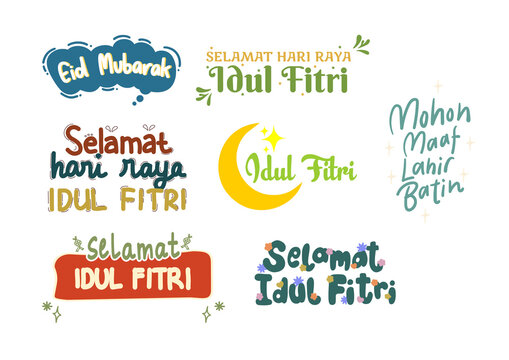 Eid Mubarak
SELAMAT HARI RAYA
Idul Fitri
Selamat
hari raya
IDUL FITRI
Idul Fitri
Mohon
Maaf
Lahir
Batin
Selamat
IDUL FITRI
Selamat
Idul Fitri